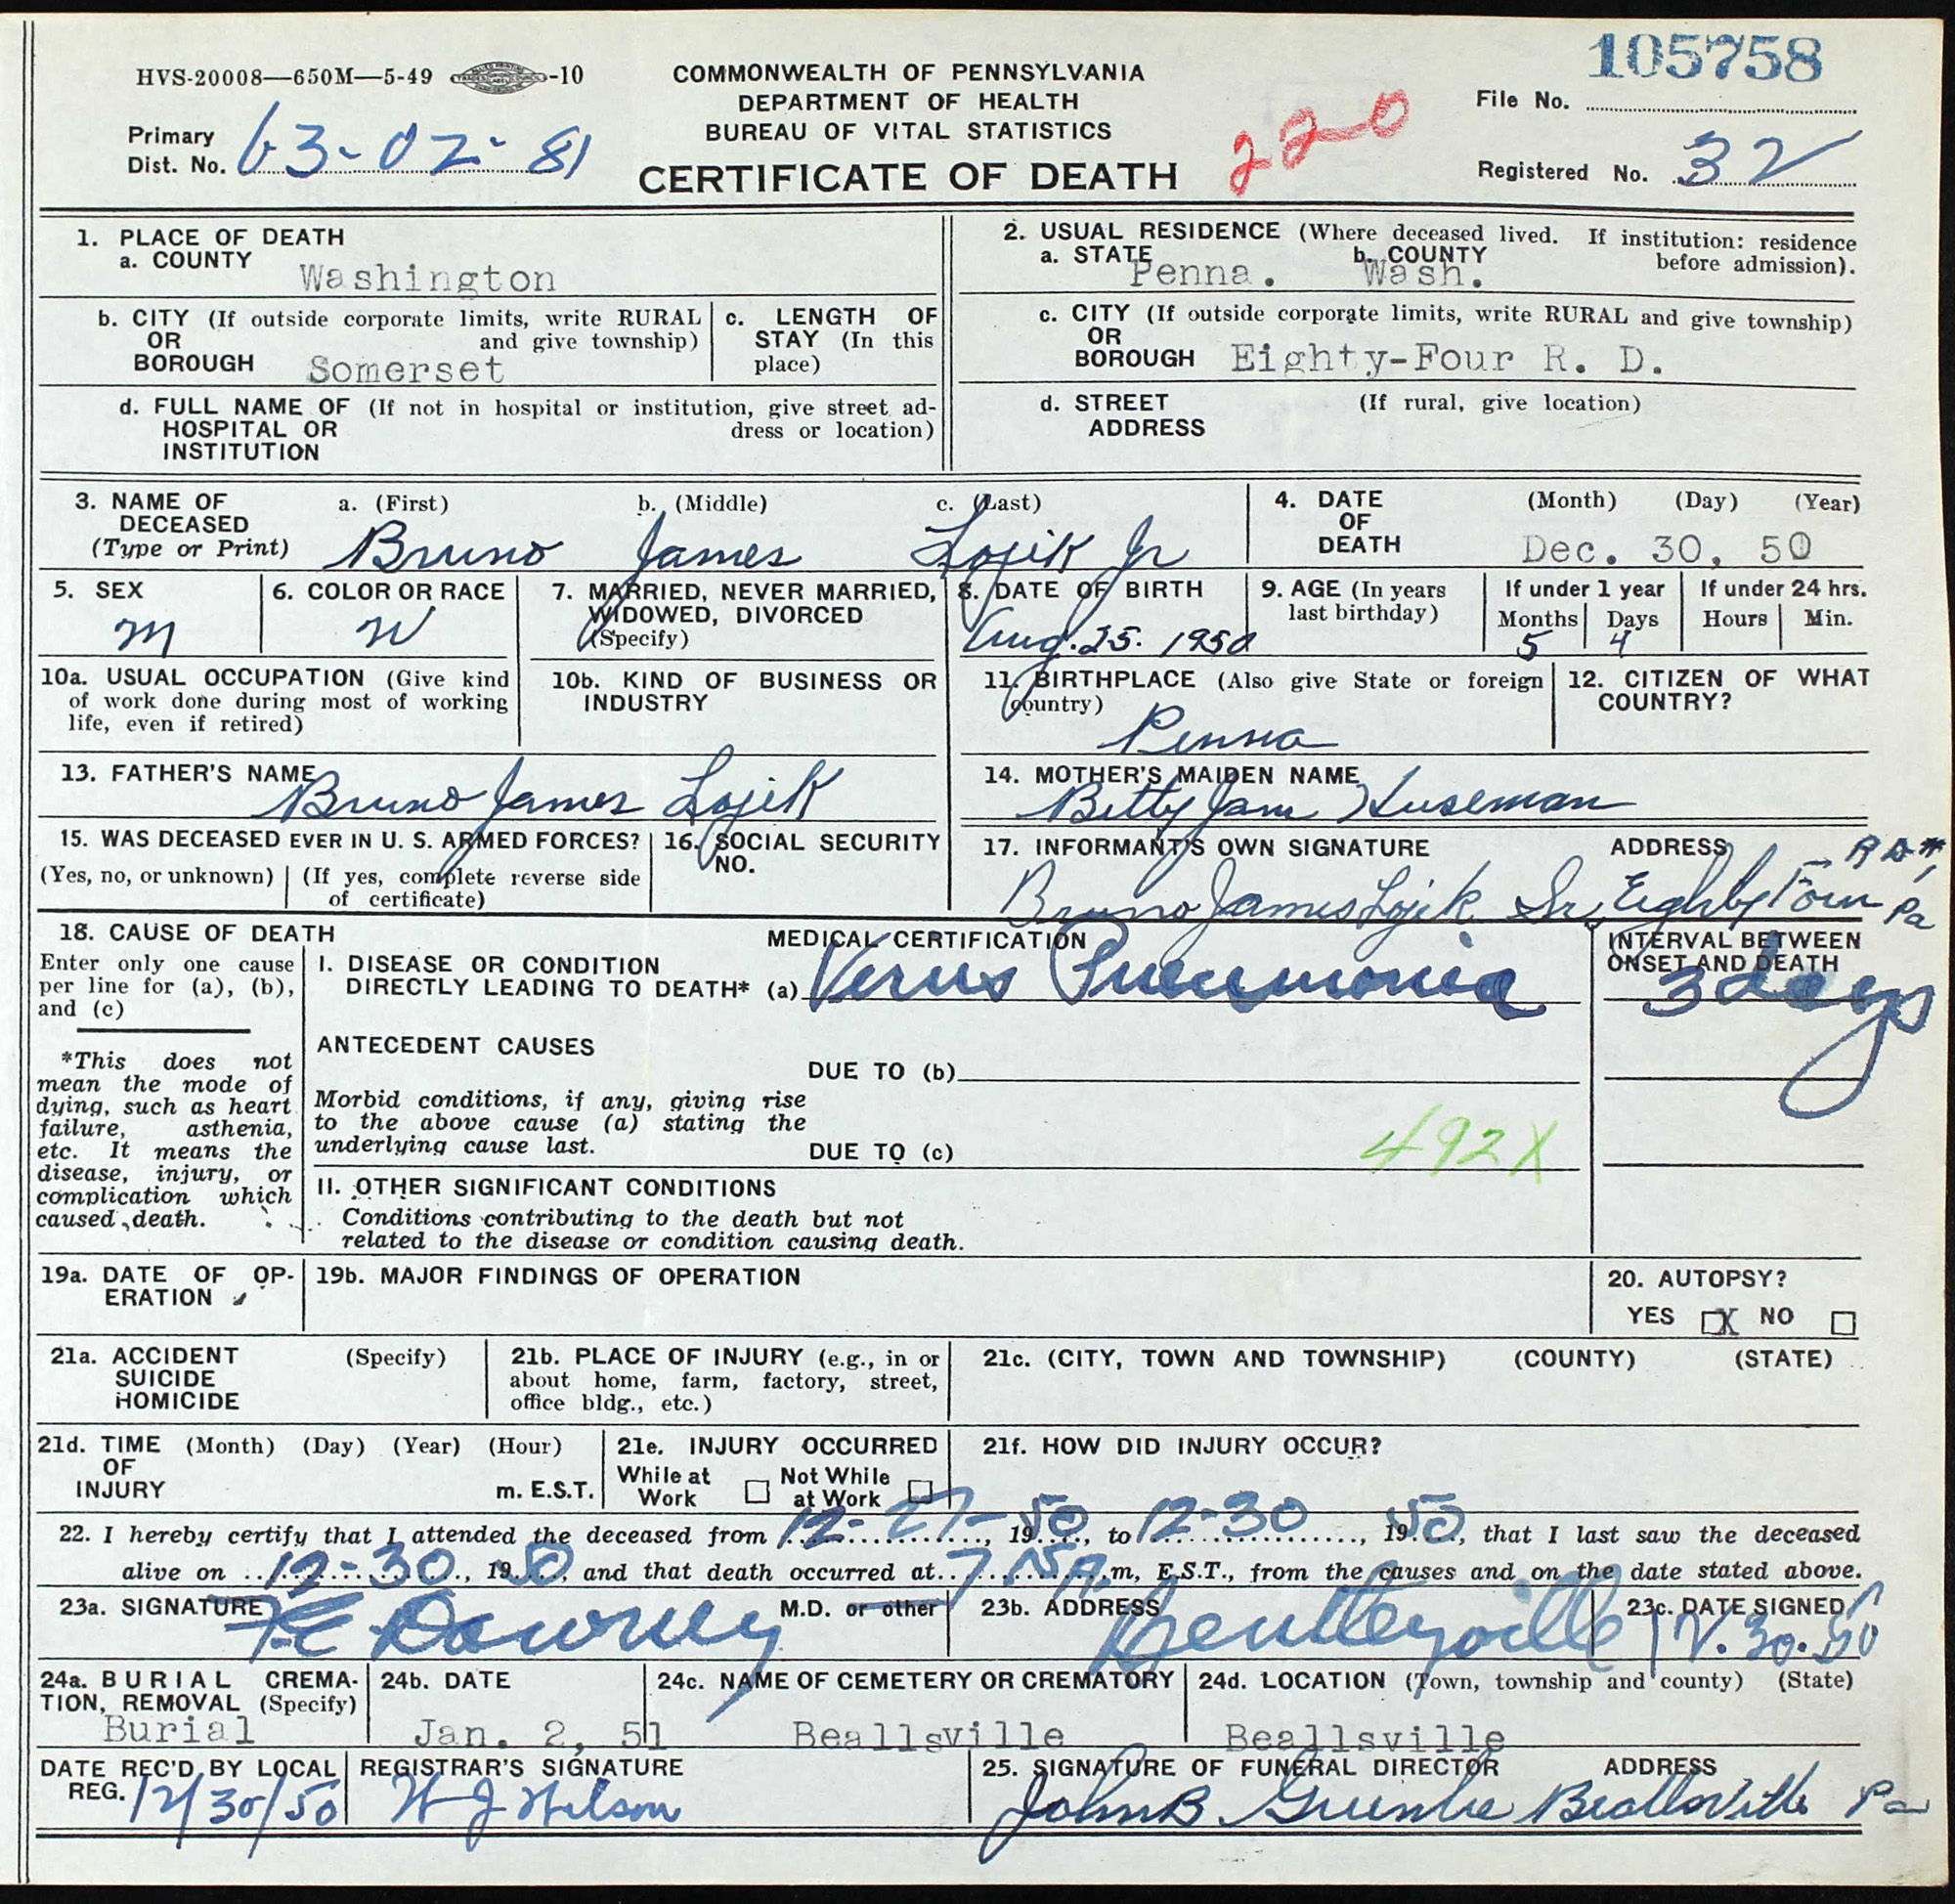 105758
HVS-20008—650M—5-49 -10
COMMONWEALTH OF PENNSYLVANIA
DEPARTMENT OF HEALTH
BUREAU OF VITAL STATISTICS
CERTIFICATE OF DEATH
220
File No.
Primary
Dist. No. 63-02-81
Registered No. 32
1. PLACE OF DEATH
a. COUNTY
Washington
2. USUAL RESIDENCE (Where deceased lived. If institution: residence
before admission).
a. STATE b. COUNTY
Penna. Wash.
b. CITY (If outside corporate limits, write RURAL
OR and give township)
BOROUGH Somerset
c. LENGTH OF
STAY (In this
place)
c. CITY (If outside corporate limits, write RURAL and give township)
OR
BOROUGH Eighty-Four R. D.
d. FULL NAME OF (If not in hospital or institution, give street ad-
HOSPITAL OR dress or location)
INSTITUTION
d. STREET (If rural, give location)
ADDRESS
3. NAME OF a. (First) b. (Middle) c. (Last)
DECEASED
(Type or Print) Bruno James Lojik Jr
4. DATE (Month) (Day) (Year)
OF
DEATH Dec. 30, 50
5. SEX
M
6. COLOR OR RACE
W
7. MARRIED, NEVER MARRIED,
WIDOWED, DIVORCED
(Specify)
8. DATE OF BIRTH
Aug. 25. 1950
9. AGE (In years
last birthday)
If under 1 year
Months Days
5 4
If under 24 hrs.
Hours Min.
10a. USUAL OCCUPATION (Give kind
of work done during most of working
life, even if retired)
10b. KIND OF BUSINESS OR
INDUSTRY
11. BIRTHPLACE (Also give State or foreign
country)
Penna
12. CITIZEN OF WHAT
COUNTRY?
13. FATHER'S NAME
Bruno James Lojik
14. MOTHER'S MAIDEN NAME
Betty Jane Huseman
15. WAS DECEASED EVER IN U. S. ARMED FORCES?
(Yes, no, or unknown) (If yes, complete reverse side
of certificate)
16. SOCIAL SECURITY
NO.
17. INFORMANT'S OWN SIGNATURE ADDRESS
Bruno James Lojik Sr, Eighty Four Pa
18. CAUSE OF DEATH
Enter only one cause
per line for (a), (b),
and (c)
*This does not
mean the mode of
dying, such as heart
failure, asthenia,
etc. It means the
disease, injury, or
complication which
caused death.
MEDICAL CERTIFICATION
I. DISEASE OR CONDITION
DIRECTLY LEADING TO DEATH* (a) Verus Pneumonia
INTERVAL BETWEEN
ONSET AND DEATH
3 days
ANTECEDENT CAUSES
DUE TO (b)
Morbid conditions, if any, giving rise
to the above cause (a) stating the
underlying cause last.
DUE TO (c)
492X
II. OTHER SIGNIFICANT CONDITIONS
Conditions contributing to the death but not
related to the disease or condition causing death.
19a. DATE OF OP-
ERATION
19b. MAJOR FINDINGS OF OPERATION
20. AUTOPSY?
YES X NO
21a. ACCIDENT (Specify)
SUICIDE
HOMICIDE
21b. PLACE OF INJURY (e.g., in or
about home, farm, factory, street,
office bldg., etc.)
21c. (CITY, TOWN AND TOWNSHIP) (COUNTY) (STATE)
21d. TIME (Month) (Day) (Year) (Hour)
OF
INJURY m. E.S.T.
21e. INJURY OCCURRED
While at Not While
Work at Work
21f. HOW DID INJURY OCCUR?
22. I hereby certify that I attended the deceased from 12-27-, 1950, to 12-30, 1950, that I last saw the deceased
alive on 12-30, 1950, and that death occurred at 7 15 A.m, E.S.T., from the causes and on the date stated above.
23a. SIGNATURE M.D. or other
Downey
23b. ADDRESS
Bentleyville
23c. DATE SIGNED
12.30.50
24a. BURIAL CREMA-
TION, REMOVAL (Specify)
Burial
24b. DATE
Jan. 2, 51
24c. NAME OF CEMETERY OR CREMATORY
Beallsville
24d. LOCATION (Town, township and county) (State)
Beallsville
DATE REC'D BY LOCAL
REG. 12/30/50
REGISTRAR'S SIGNATURE
W J Wilson
25. SIGNATURE OF FUNERAL DIRECTOR ADDRESS
John B Beallsville Pa